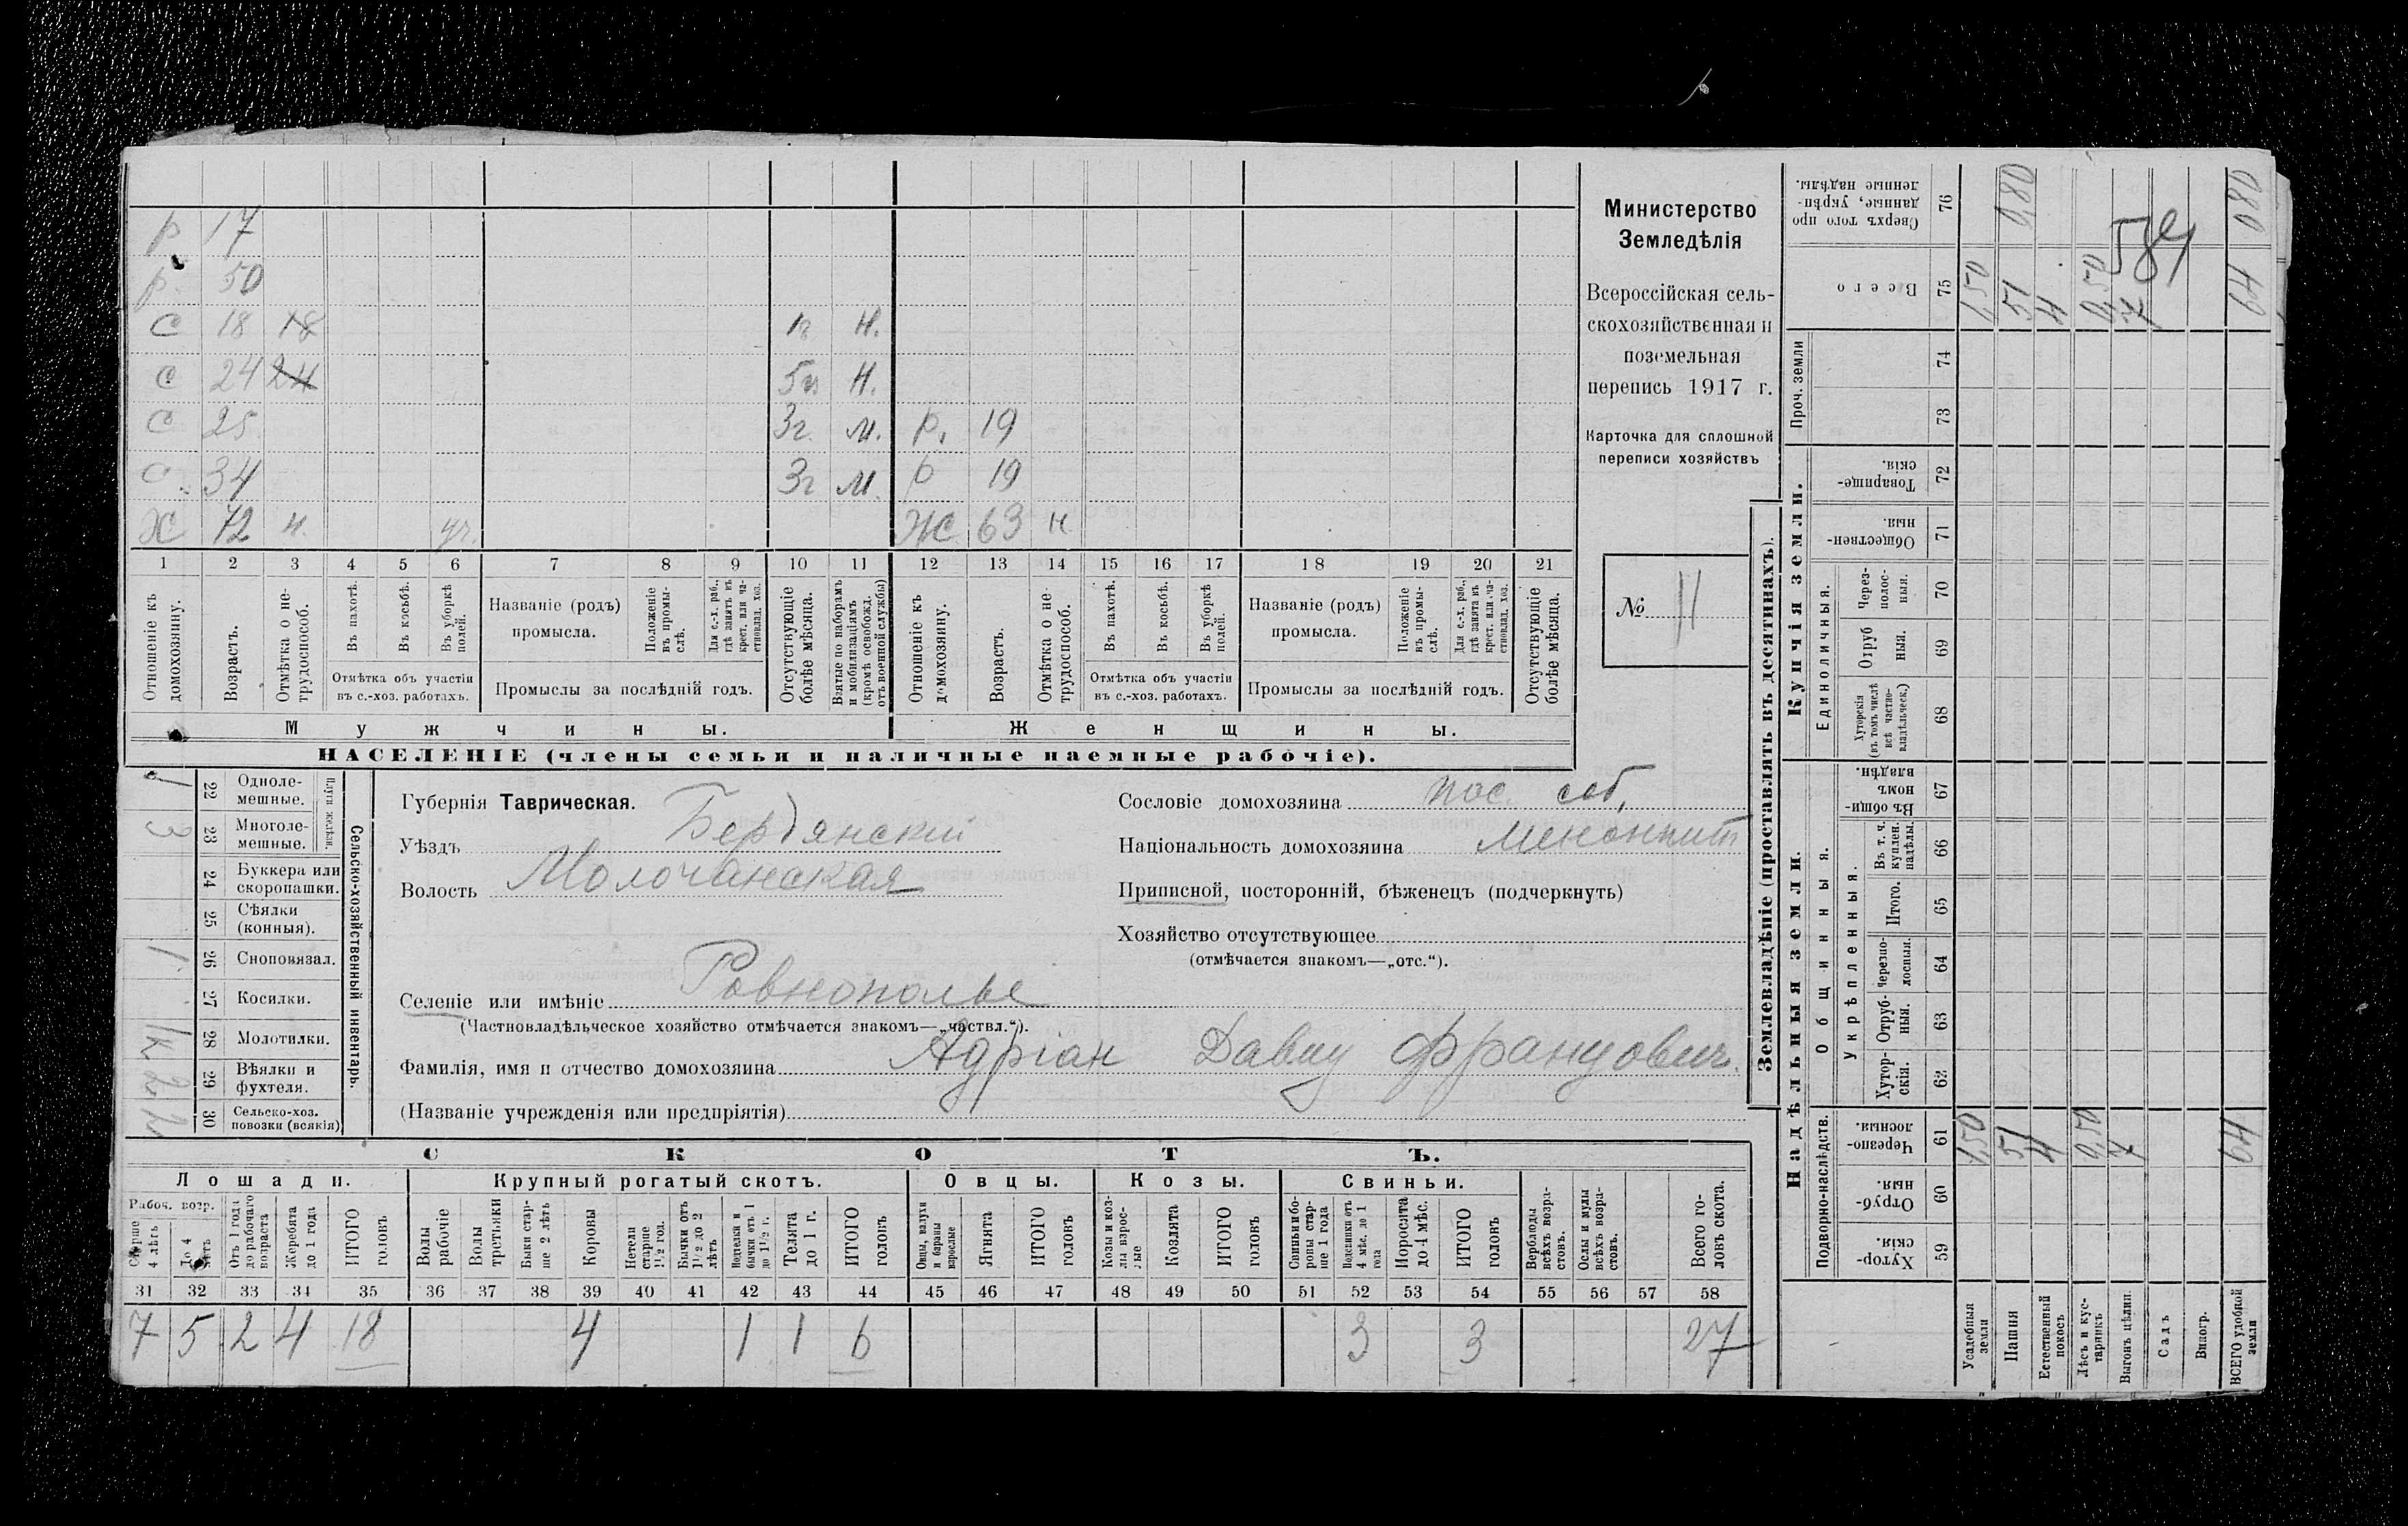 р 17
р. 50
С 18 18 1г Н.
С 24 24 5м Н.
С 25 3г. М. Р. 19
С. 34 3г М. Р 19
Х 72 н. уч. Ж 63 н
1 2 3 4 5 6 7 8 9 10 11 12 13 14 15 16 17 18 19 20 21
Отношеніе къ домохозяину.
Возрастъ.
Отмѣтка о не-
трудоспособ.
Въ пахотѣ.
Въ косьбѣ.
Въ уборкѣ
полей.
Отмѣтка объ участіи
въ с.-хоз. работахъ.
Названіе (родъ)
промысла.
Положеніе
въ промы-
слѣ.
Для с.-х. раб.,
гдѣ занятъ въ
крест. или ча-
стновлад. хоз.
Промыслы за послѣдній годъ.
Отсутствующіе
болѣе мѣсяца.
Взятые по наборамъ
и мобилизаціямъ
(кромѣ освобожд.
отъ военной службы)
Отношеніе къ
домохозяину.
Возрастъ.
Отмѣтка о не-
трудоспособ.
Въ пахотѣ.
Въ косьбѣ.
Въ уборкѣ
полей.
Отмѣтка объ участіи
въ с.-хоз. работахъ.
Названіе (родъ)
промысла.
Положеніе
въ промы-
слѣ.
Для с.-х. раб.,
гдѣ занята въ
крест. или ча-
стновлад. хоз.
Промыслы за послѣдній годъ.
Отсутствующіе
болѣе мѣсяца.
Мужчины.
Женщины.
НАСЕЛЕНІЕ (члены семьи и наличные наемные рабочіе).
Министерство
Земледѣлія
Всероссійская сель-
скохозяйственная и
поземельная
перепись 1917 г.
Карточка для сплошной
переписи хозяйствъ
№ 11
Сельско-хозяйственный инвентарь.
Плуги желѣзн.
1 22 Одноле-
мешные.
3 23 Многоле-
мешные.
24 Буккера или
скоропашки.
25 Сѣялки
(конныя).
1 26 Сноповязал.
27 Косилки.
1к 28 Молотилки.
2 29 Вѣялки и
фухтеля.
2 30 Сельско-хоз.
повозки (всякія)
Губернія Таврическая.
Уѣздъ Бердянский
Волость Молочанская
Селеніе или имѣніе Ровнополье
(Частновладѣльческое хозяйство отмѣчается знакомъ—„частвл.“).
Фамилія, имя и отчество домохозяина Адріан Давид Францович.
(Названіе учрежденія или предпріятія)
Сословіе домохозяина пос. соб.
Національность домохозяина менонит
Приписной, посторонній, бѣженецъ (подчеркнуть)
Хозяйство отсутствующее
(отмѣчается знакомъ—„отс.“).
СКОТЪ.
Лошади.
Крупный рогатый скотъ.
Овцы.
Козы.
Свиньи.
Рабоч. возр.
Старше
4 лѣтъ
До 4
лѣтъ
Отъ 1 года
до рабочаго
возраста
Жеребята
до 1 года
ИТОГО
головъ
Волы
рабочіе
Волы
третьяки
Быки стар-
ше 2 лѣтъ
Коровы
Нетели
старше
1½ год.
Бычки отъ
1½ до 2
лѣтъ
Подтелки и
бычки отъ 1
до 1½ г.
Телята
до 1 г.
ИТОГО
головъ
Овцы, валухи
и бараны
взрослые
Ягнята
ИТОГО
головъ
Козы и коз-
лы взрос-
лые
Козлята
ИТОГО
головъ
Свиньи и бо-
ровы стар-
ше 1 года
Подсвинки отъ
4 мѣс. до 1
года
Поросята
до 4 мѣс.
ИТОГО
головъ
Верблюды
всѣхъ возра-
стовъ.
Ослы и мулы
всѣхъ возра-
стовъ.
Всего го-
ловъ скота.
31 32 33 34 35 36 37 38 39 40 41 42 43 44 45 46 47 48 49 50 51 52 53 54 55 56 57 58
7 5 2 4 18 4 1 1 6 3 3 27
Землевладѣніе (проставлять въ десятинахъ).
Купчія земли.
Надѣльныя земли.
Проч. земли
Единоличныя.
Общинныя.
Укрѣпленныя.
Подворно-наслѣдств.
76 Сверхъ того про
данные, укрѣп-
ленные надѣлы.
75 Всего
74
73
72 Товарище-
скія.
71 Обществен-
ныя.
70 Через-
полос-
ныя.
69 Отруб
ныя.
68 Хуторскія
(въ томъ числѣ
всѣ частно-
владѣльческ.)
67 Въ общин-
номъ
владѣн.
66 Въ т. ч.
куплен.
надѣлы.
65 Итого.
64 Черезпо-
лосныя.
63 Отруб-
ныя.
62 Хутор-
скія.
61 Черезпо-
лосныя.
60 Отруб-
ныя.
59 Хутор-
скія.
Усадебныя
земли 1,50 1,50
Пашня 51 51 0,80
Естественный
покосъ 4 4
Лѣсъ и кус-
тарникъ 0,50 0,50
Выгонъ цѣлин. 7 7
Садъ
Виногр.
ВСЕГО удобной
земли 64 64 080